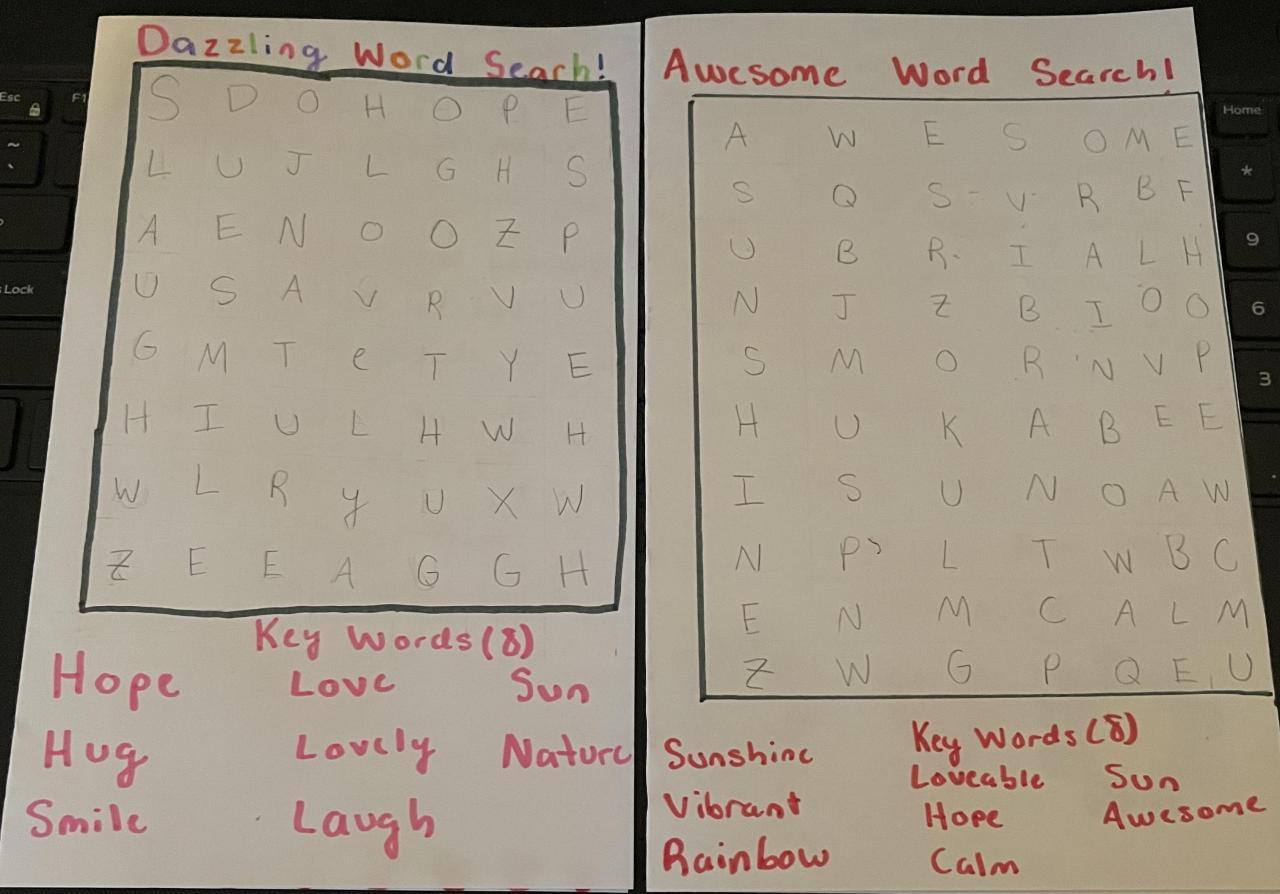 Dazzling Word Searh!
S D O H O P E
L U J L G H S
A E N O O Z P
U S A V R V U
G M T e T Y E
H I U L H W H
W L R y U X W
Z E E A G G H
Key Words (8)
Hope Love Sun
Hug Lovely Nature
Smile Laugh
Awesome Word Search!
A W E S O M E
S Q S V R B F
U B R I A L H
N J Z B I O O
S M O R N V P
H U K A B E E
I S U N O A W
N P L T W B C
E N M C A L M
Z W G P Q E U
Key Words (8)
Sunshine Loveable Sun
Vibrant Hope Awesome
Rainbow Calm
Esc
F1
~
`
Lock
Home
*
9
6
3